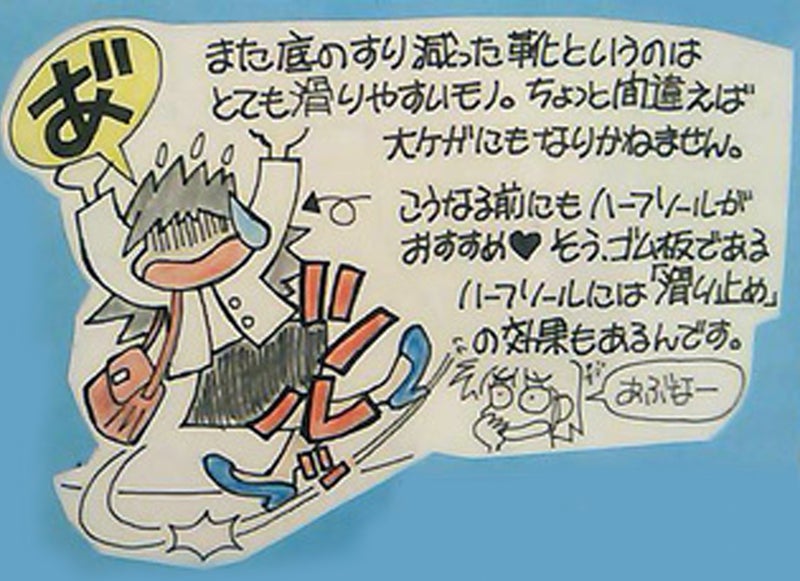 あ゛
また底のすり減った靴というのは
とても滑りやすいモノ。ちょっと間違えば
大ケガにもなりかねません。
こうなる前にもハーフソールが
おすすめ♥そう、ゴム板である
ハーフソールには「滑り止め」
の効果もあるんです。
ツルッ
おぶなー